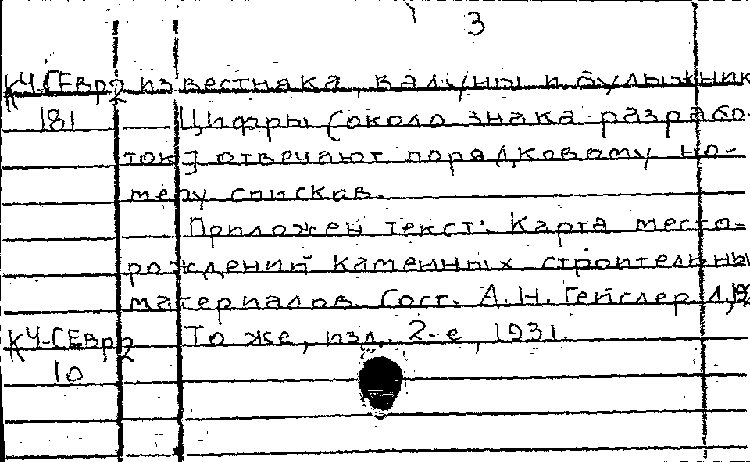 3
КЧ-СЕвр2 известняка, валуны и булыжник
181 Цифры (около знака разрабо-
ток) отвечают порядковому но-
меру списков.
Приложен текст: Карта место-
рождений каменных строительны
материалов. Сост. А.Н. Гейслер Л,
КЧ-СЕвр2 То же, изд. 2-е, 1931.
10